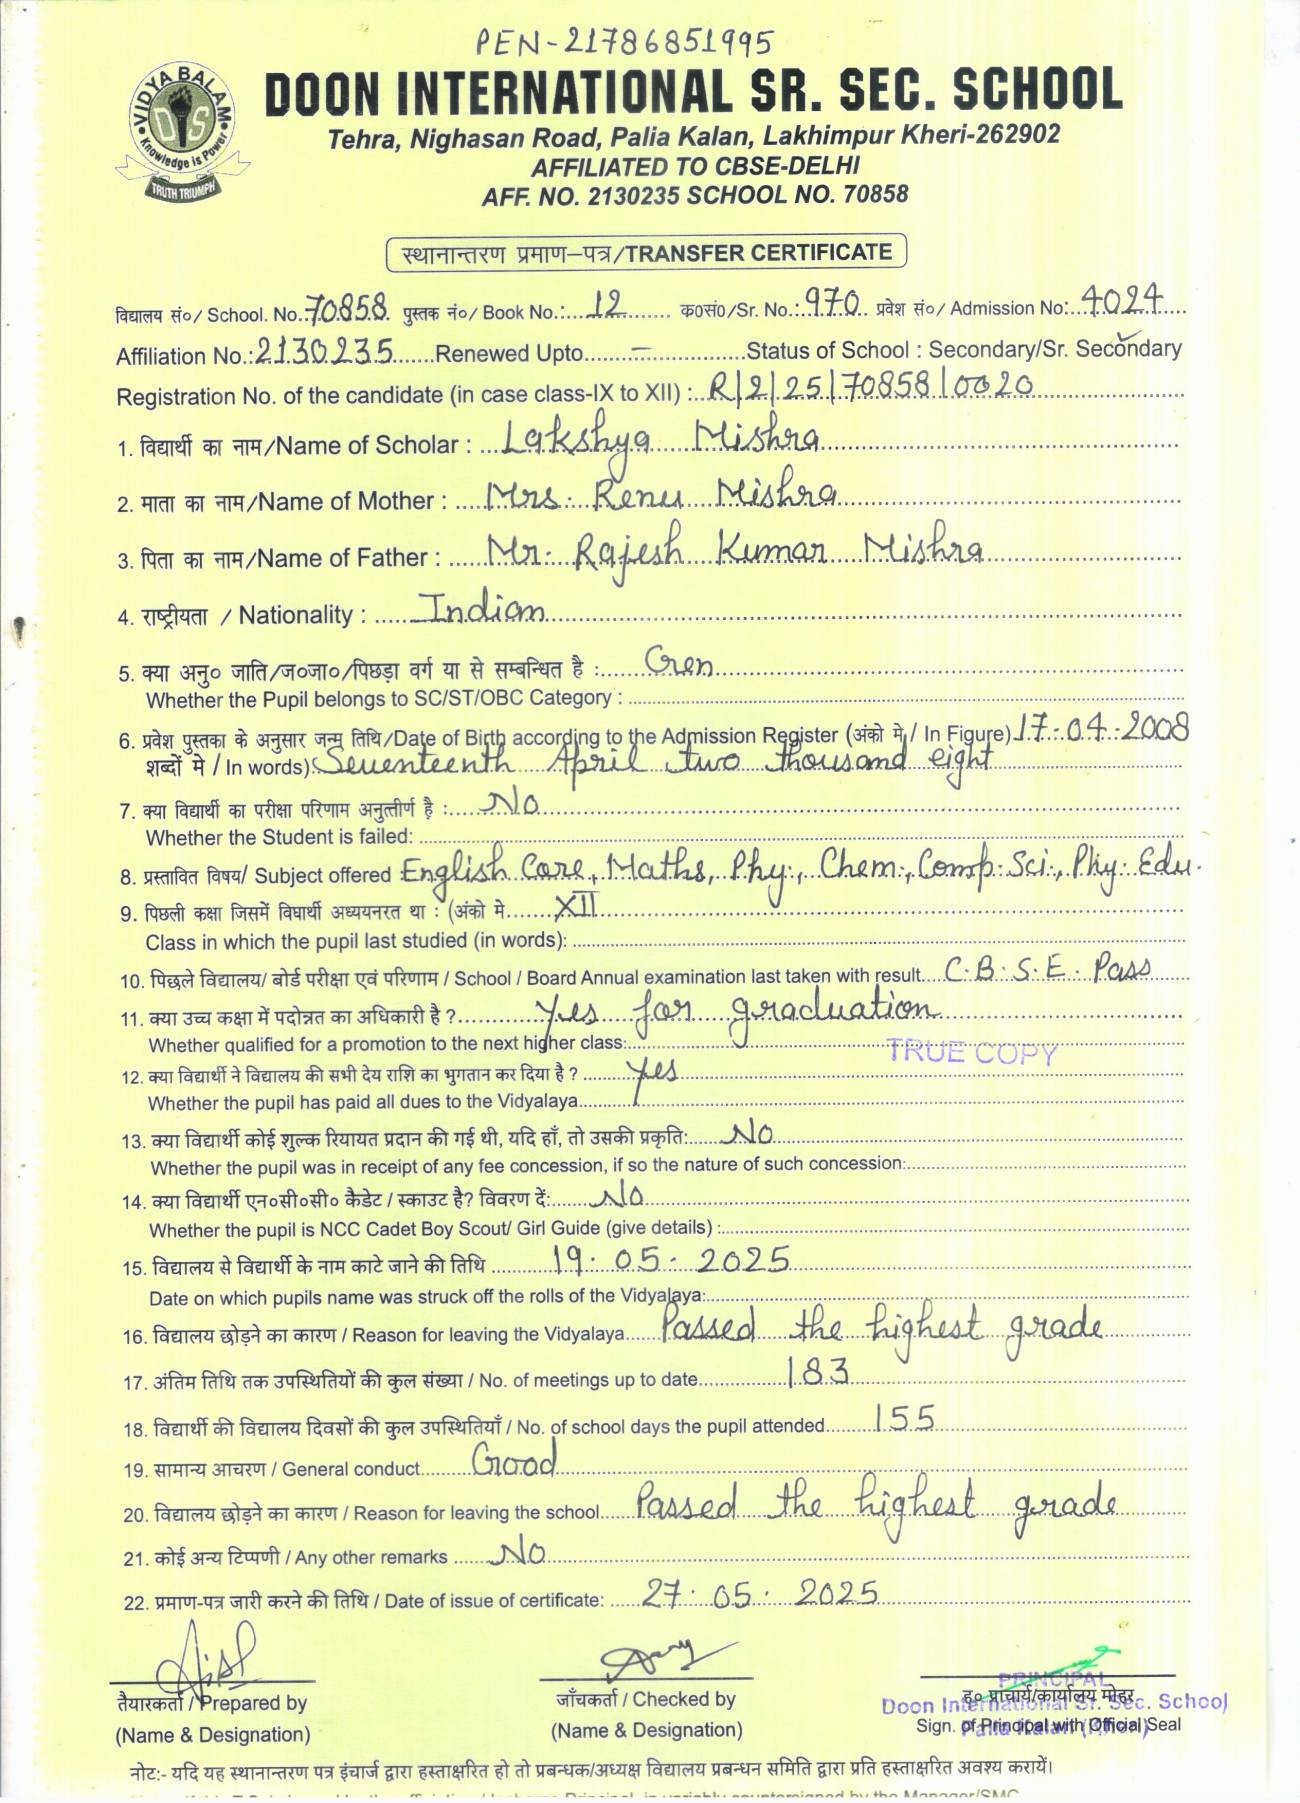 PEN-21786851995
VIDYA BALAM
DIS
Knowledge is Power
TRUTH TRIUMPH
DOON INTERNATIONAL SR. SEC. SCHOOL
Tehra, Nighasan Road, Palia Kalan, Lakhimpur Kheri-262902
AFFILIATED TO CBSE-DELHI
AFF. NO. 2130235 SCHOOL NO. 70858
स्थानान्तरण प्रमाण–पत्र/TRANSFER CERTIFICATE
विद्यालय सं०/ School. No. 70858 पुस्तक नं०/ Book No.: 12 क०सं०/Sr. No.: 970 प्रवेश सं०/ Admission No: 4024
Affiliation No.: 2130235 Renewed Upto – Status of School : Secondary/Sr. Secondary
Registration No. of the candidate (in case class-IX to XII) : R|2|25|70858|0020
1. विद्यार्थी का नाम/Name of Scholar : Lakshya Mishra
2. माता का नाम/Name of Mother : Mrs. Renu Mishra
3. पिता का नाम/Name of Father : Mr. Rajesh Kumar Mishra
4. राष्ट्रीयता / Nationality : Indian
5. क्या अनु० जाति/ज०जा०/पिछड़ा वर्ग या से सम्बन्धित है : Gen
Whether the Pupil belongs to SC/ST/OBC Category :
6. प्रवेश पुस्तका के अनुसार जन्म तिथि/Date of Birth according to the Admission Register (अंको मे / In Figure) 17-04-2008
शब्दों मे / In words) Seventeenth April two thousand eight
7. क्या विद्यार्थी का परीक्षा परिणाम अनुत्तीर्ण है : No
Whether the Student is failed:
8. प्रस्तावित विषय/ Subject offered English Core, Maths, Phy., Chem., Comp. Sci., Phy. Edu.
9. पिछली कक्षा जिसमें विद्यार्थी अध्ययनरत था : (अंको मे XII
Class in which the pupil last studied (in words):
10. पिछले विद्यालय/ बोर्ड परीक्षा एवं परिणाम / School / Board Annual examination last taken with result C.B.S.E. Pass
11. क्या उच्च कक्षा में पदोन्नत का अधिकारी है ? Yes for graduation
Whether qualified for a promotion to the next higher class:
TRUE COPY
12. क्या विद्यार्थी ने विद्यालय की सभी देय राशि का भुगतान कर दिया है ? Yes
Whether the pupil has paid all dues to the Vidyalaya
13. क्या विद्यार्थी कोई शुल्क रियायत प्रदान की गई थी, यदि हाँ, तो उसकी प्रकृति: No
Whether the pupil was in receipt of any fee concession, if so the nature of such concession:
14. क्या विद्यार्थी एन०सी०सी० कैडेट / स्काउट है? विवरण दें: No
Whether the pupil is NCC Cadet Boy Scout/ Girl Guide (give details) :
15. विद्यालय से विद्यार्थी के नाम काटे जाने की तिथि 19.05.2025
Date on which pupils name was struck off the rolls of the Vidyalaya:
16. विद्यालय छोड़ने का कारण / Reason for leaving the Vidyalaya Passed the highest grade
17. अंतिम तिथि तक उपस्थितियों की कुल संख्या / No. of meetings up to date 183
18. विद्यार्थी की विद्यालय दिवसों की कुल उपस्थितियाँ / No. of school days the pupil attended 155
19. सामान्य आचरण / General conduct Good
20. विद्यालय छोड़ने का कारण / Reason for leaving the school Passed the highest grade
21. कोई अन्य टिप्पणी / Any other remarks No
22. प्रमाण-पत्र जारी करने की तिथि / Date of issue of certificate: 27.05.2025
तैयारकर्ता / Prepared by
(Name & Designation)
जाँचकर्ता / Checked by
(Name & Designation)
PRINCIPAL
ह० प्राचार्य/कार्यालय मोहर
Doon International Sr. Sec. School
Sign. of Principal with Official Seal
Palia Kalan (Kheri)
नोट:- यदि यह स्थानान्तरण पत्र इंचार्ज द्वारा हस्ताक्षरित हो तो प्रबन्धक/अध्यक्ष विद्यालय प्रबन्धन समिति द्वारा प्रति हस्ताक्षरित अवश्य करायें।